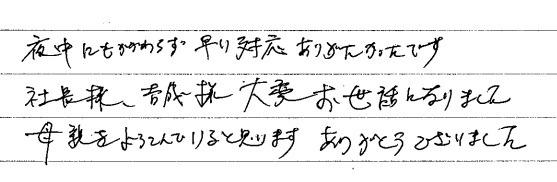 夜中にもかかわらず 早い対応 ありがたかったです
社長様、吉成様 大変お世話になりました
母親もよろこんでいると思います ありがとうございました